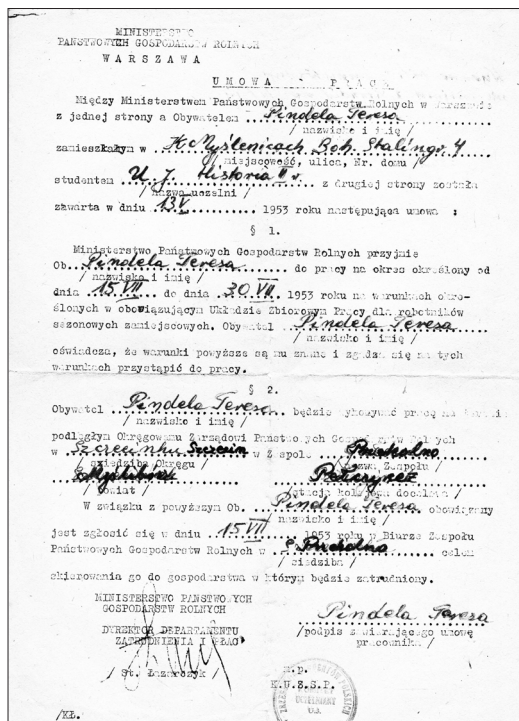 MINISTERSTWO
PAŃSTWOWYCH GOSPODARSTW ROLNYCH
WARSZAWA
UMOWA PRACY
Między Ministerstwem Państwowych Gospodarstw Rolnych w Warszawie
z jednej strony a Obywatelem Pindela Teresa
/ nazwisko i imię /
zamieszkałym w K Myślenicach Boh. Stalingr. 4
/ miejscowość, ulica, Nr. domu /
studentem U. J. Historia II r. z drugiej strony została
/ nazwa uczelni /
zawarta w dniu 13 V 1953 roku następująca umowa :
§ 1.
Ministerstwo Państwowych Gospodarstw Rolnych przyjmie
Ob. Pindela Teresa do pracy na okres określony od
/ nazwisko i imię /
dnia 15 VII do dnia 30 VII 1953 roku na warunkach okre-
ślonych w obowiązującym Układzie Zbiorowym Pracy dla robotników
sezonowych zamiejscowych. Obywatel Pindela Teresa
/ nazwisko i imię /
oświadcza, że warunki powyższe są mu znane i zgadza się na tych
warunkach przystąpić do pracy.
§ 2.
Obywatel Pindela Teresa będzie wykonywać pracę na
/ nazwisko i imię /
podległym Okręgowemu Zarządowi Państwowych Gospodarstw Rolnych
w Szczecinku Szczecin w Zespole
/ siedziba Okręgu / / nazw. Zespołu
/ Powiat / / stacja kolejowa docelowa /
W związku z powyższym Ob. Pindela Teresa obowiązany
/ nazwisko i imię /
jest zgłosić się w dniu 15 VII 1953 roku w Biurze Zespołu
Państwowych Gospodarstw Rolnych w celem
/ siedziba /
skierowania go do gospodarstwa w którym będzie zatrudniony.
MINISTERSTWO PAŃSTWOWYCH
GOSPODARSTW ROLNYCH
DYREKTOR DEPARTAMENTU
ZATRUDNIENIA I PŁAC
/ St. Łazarczyk /
Pindela Teresa
/podpis zawierającego umowę
pracownika/
m.p.
K.U.Z.S.P.
/KŁ.